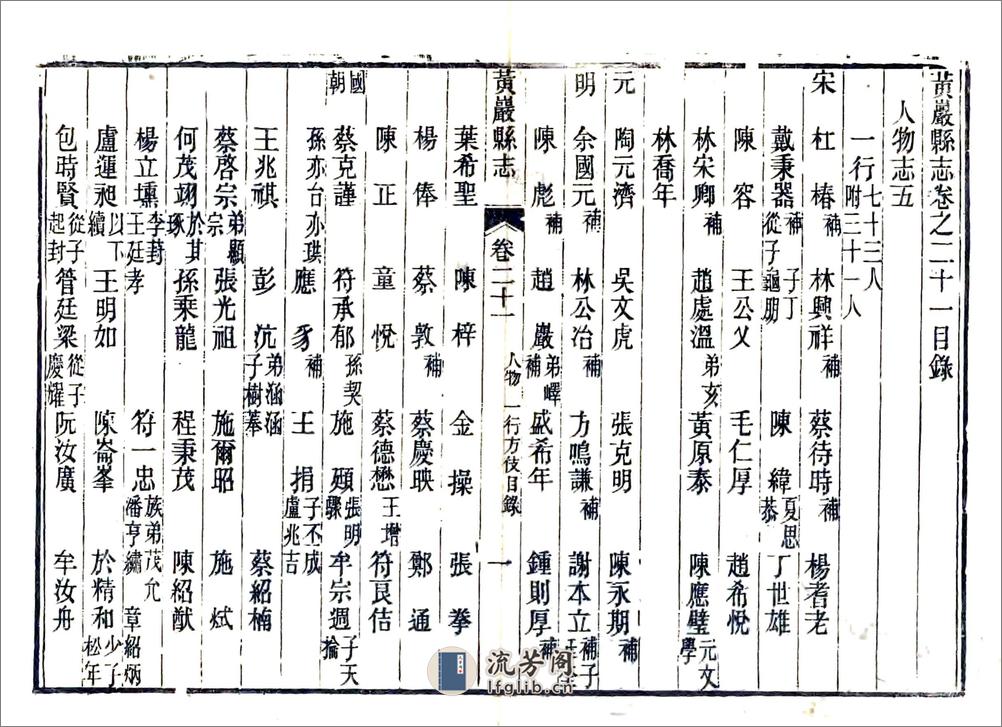 黃巖縣志卷之二十一目錄
人物志五
一行七十三人附三十一人
宋 杜椿補 林興祥補 蔡待時補 楊耆老
戴秉器補從子 子丁龜朋 陳緯夏思恭 丁世雄
陳容 王公父 毛仁厚 趙希悅
林宋卿補 趙處溫弟亥 黃原泰 陳應璧元文學
林喬年
元 陶元濟 吳文虎 張克明 陳永期補
明 余國元補 林公冶補 方鳴謙補 謝本立補子
陳彪 趙巖弟嶧補 盛希年 鍾則厚補
黃巖縣志 卷二十一 人物 一行方伎目錄 一
葉希聖 陳梓 金操 張拳
楊俸 蔡敦補 蔡慶映 鄭通
陳正 童悅 蔡德懋王增 符良佶
國朝 蔡克謹 符承郁孫契 施頤張明驟 牟宗週子天掄
孫亦台亦璞 應豸補 王捐子丕成盧兆吉
王兆祺 彭沆弟涵涵子樹蓁 蔡紹楠
蔡啓宗弟顯宗 張光祖 施爾昭 施斌
何茂翊於其琢 孫乘龍 程秉茂 陳紹猷
楊立壎李封王廷孝 符一忠族弟茂允潘亨繡 章紹炳
盧運昶以下續 王明如 陳崙峯 於精和少子松年
包時賢從子起封 管廷梁從子慶耀 阮汝廣 牟汝舟
流芳閣
lfglib.cn